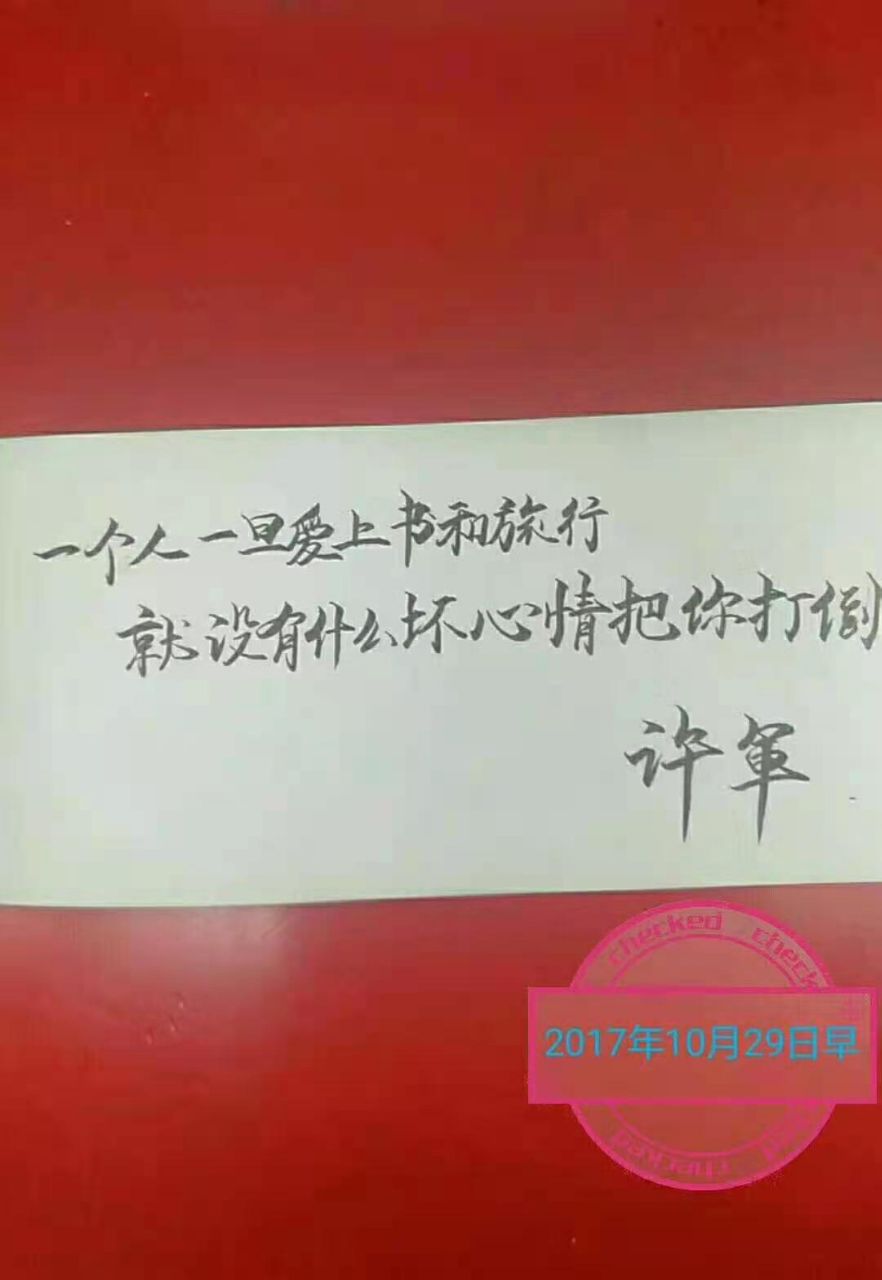 一个人一旦爱上书和旅行
就没有什么坏心情把你打倒
许軍
checked checked
2017年10月29日早
checked checked